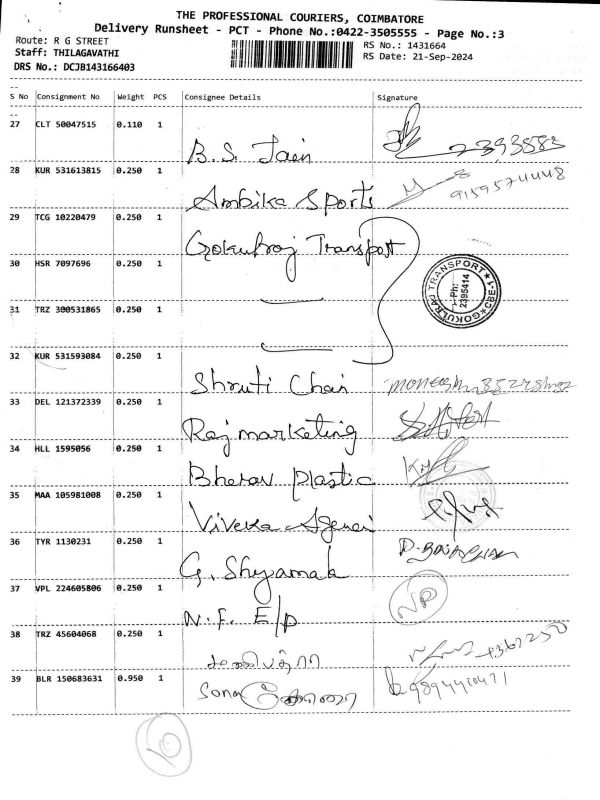 THE PROFESSIONAL COURIERS, COIMBATORE
Delivery Runsheet - PCT - Phone No.:0422-3505555 - Page No.:3
Route: R G STREET
RS No.: 1431664
Staff: THILAGAVATHI
RS Date: 21-Sep-2024
DRS No.: DCJB143166403
S No Consignment No Weight PCS Consignee Details Signature
27 CLT 50047515 0.110 1
B.S. Jain 2393883
28 KUR 531613815 0.250 1
Ambika Sports 9159574448
29 TCG 10220479 0.250 1
Gokulraj Transport
30 HSR 7097696 0.250 1
GOKULRAJ TRANSPORT CBE-1
Ph: 2395414
31 TRZ 300531865 0.250 1
32 KUR 531593084 0.250 1
Shruti Chair
33 DEL 121372339 0.250 1
Raj marketing
34 HLL 1595056 0.250 1
Bherav Plastic
35 MAA 105981008 0.250 1
Viveka
36 TYR 1130231 0.250 1
G. Shyamak
37 VPL 224605806 0.250 1
N.F. E/P NP
38 TRZ 45604068 0.250 1
39 BLR 150683631 0.950 1
Sona